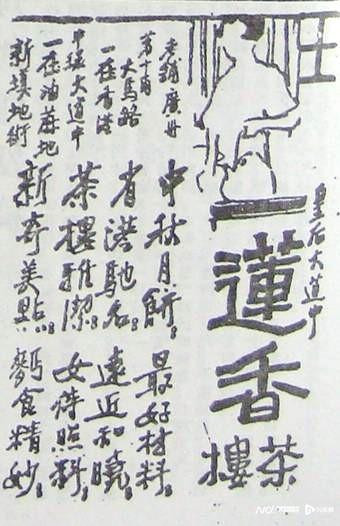 皇后大道中
蓮香
茶樓
老鋪廣州
第十甫
大馬路
一在香港
中環大道中
一在油蔴地
新填地街
中秋月餅。最好材料。
省港馳名。遠近知曉。
茶樓雅潔。女侍照料。
新奇美點。麪食精妙。